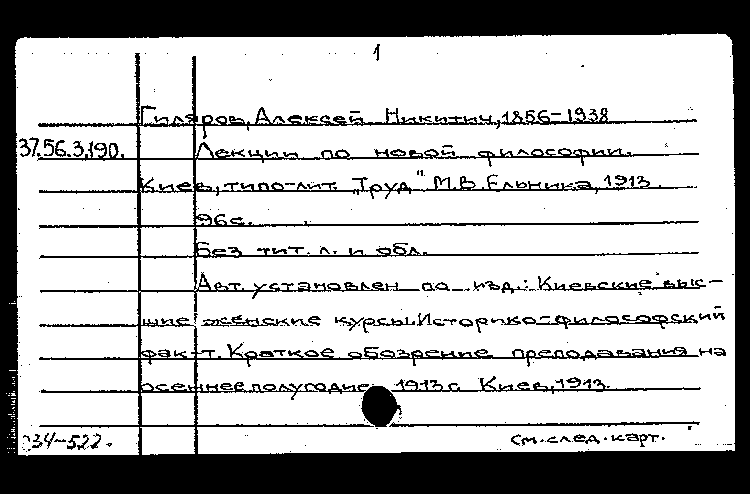 1
Гиляров, Алексей Никитич, 1856-1938
37.56.3.190. Лекции по новой философии.
Киев, типо-лит. "Труд" М.В. Ельника, 1913.
96с.
Без тит. л. и обл.
Авт. установлен по изд.: Киевские выс-
шие женские курсы. Историко-философский
фак-т. Краткое обозрение преподавания на
осеннее полугодие 1913 г. Киев, 1913.
34-522. См. след. карт.